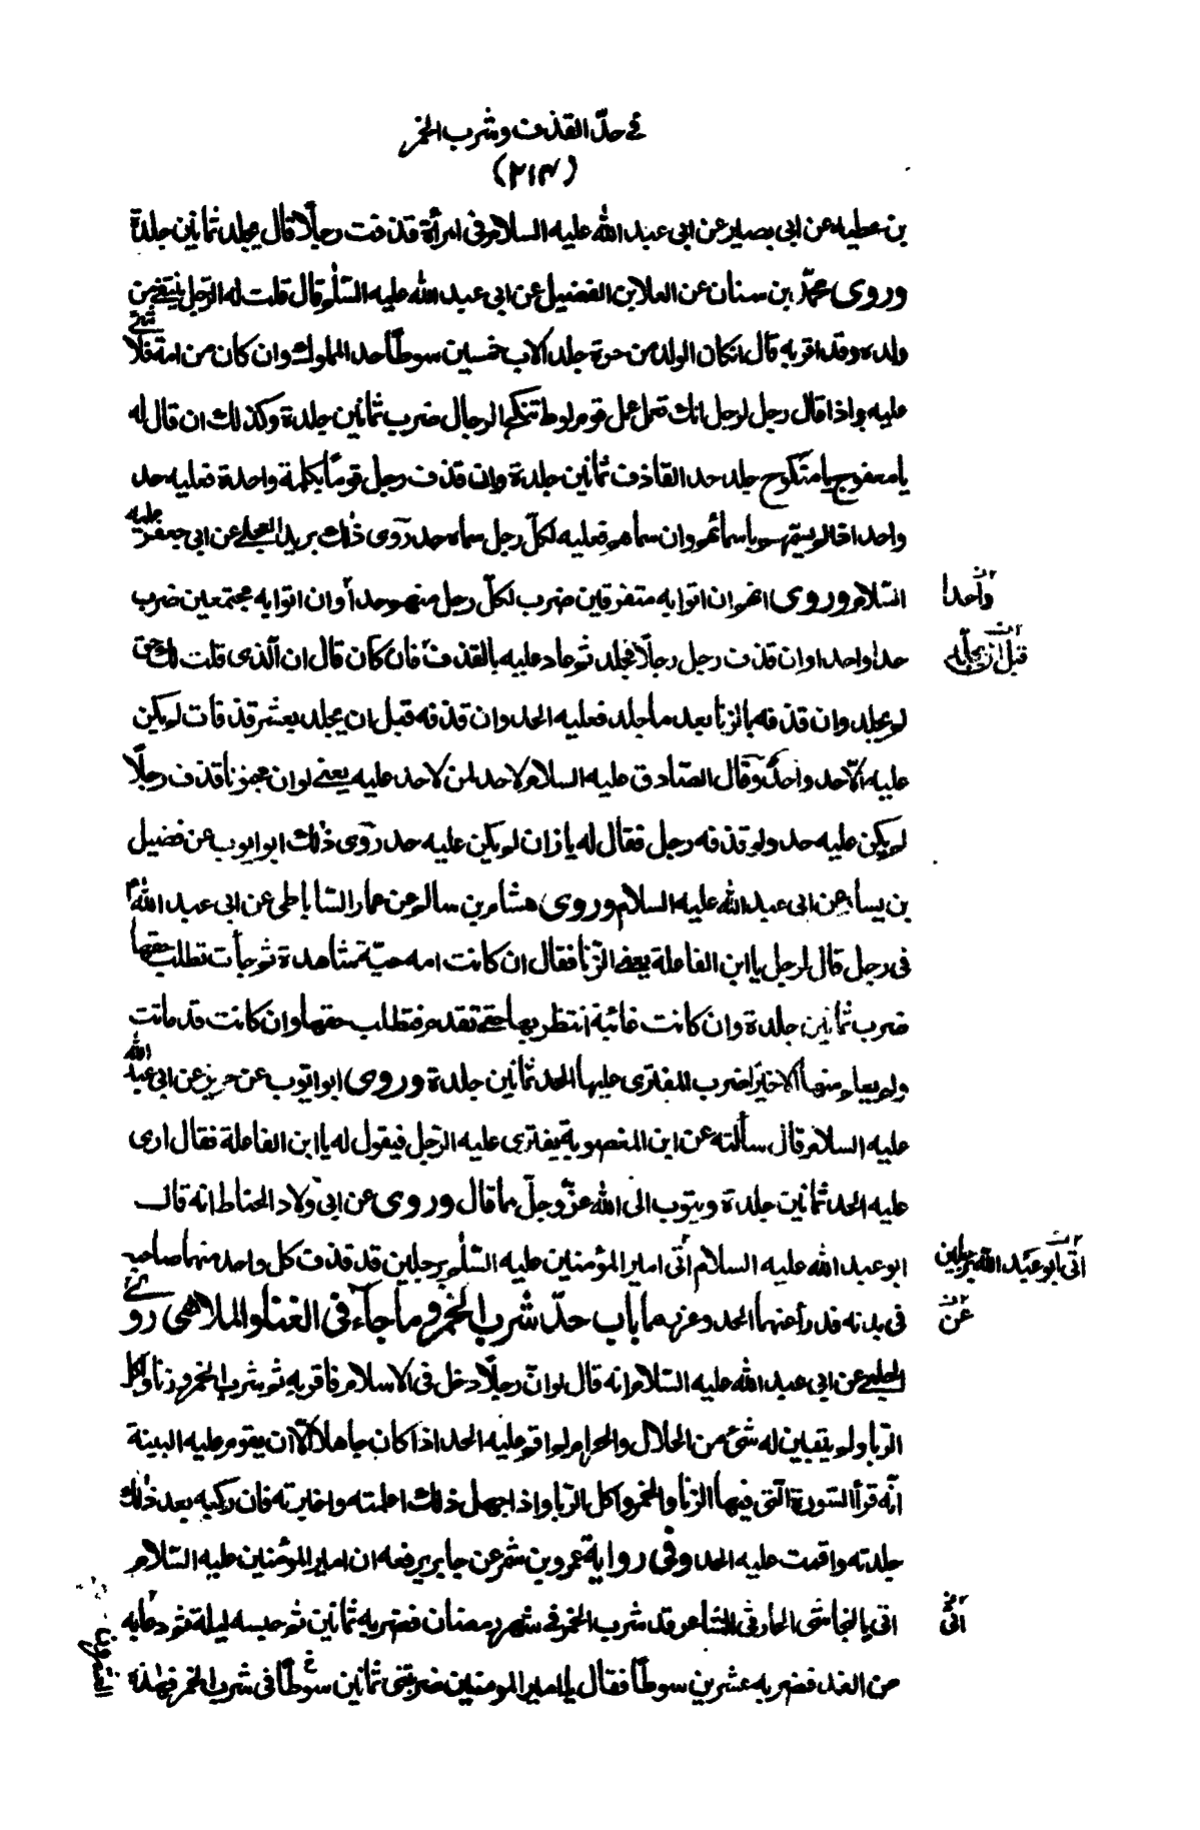 في حدّ القذف وشرب الخمر
(٢١٣)
بن عطيه عن ابى بصير عن ابى عبد الله عليه السلام فى امرأة قذفت رجلًا قال يجلد ثمانين جلدة
وروى محمّد بن سنان عن العلا بن الفضيل عن ابى عبد الله عليه السّلم قال قلت له الرّجل ينتفى من
ولده وقد اقر به قال انكان الولد من حرة جلد الاب خمسين سوطًا حد المملوك وان كان من امة فلا شئ
عليه واذا قال رجل لرجل انك تعمل عمل قوم لوط تنكح الرجال ضرب ثمانين جلدة وكذلك ان قال له
يا معفوج يا منكوح جلد حد القاذف ثمانين جلدة وان قذف رجل قومًا بكلمة واحدة فعليه حد
واحد اذا لم يسمهم باسمائهم وان سماهم فعليه لكلّ رجل سماه حد روى ذلك بريد العجلى عن ابى جعفر عليه
السّلام وروى انهم ان اتوا به متفرقين ضرب لكلّ رجل منهم حدا وان اتوا به مجتمعين ضرب
واحدا
حدا واحدا وان قذف رجل رجلًا فجلد ثم عاد عليه بالقذف فان كان قال ان الّذى قلت لك حق
قبل ان يجلد
لم يجلد وان قذفه بالزنا بعد ما جلد فعليه الحد وان قذفه قبل ان يجلد بعشر قذفات لم يكن
عليه الّا حد واحد وقال الصّادق عليه السلام لا حد لمن لا حد عليه يعنى لو ان مجنونا قذف رجلًا
لم يكن عليه حد ولو قذفه رجل فقال له يا زان لم يكن عليه حد روى ذلك ابو ايوب عن فضيل
بن يسار عن ابى عبد الله عليه السلام وروى هشام بن سالم عن عمار السّاباطى عن ابى عبد الله م
فى رجل قال لرجل يا ابن الفاعلة يعنى الزّنا فقال ان كانت امه حيّة شاهدة ثم جاءت تطلب حقها
ضرب ثمانين جلدة وان كانت غائبة انتظر بها حتى تقدم فتطلب حقها وان كانت قد ماتت
ولم يعلم منها الا خيرا ضرب المفترى عليها الحد ثمانين جلدة وروى ابو ايّوب عن حريز عن ابى عبد الله
عليه السلام قال سألته عن ابن المغصوبة يفترى عليه الرّجل فيقول له يا ابن الفاعلة فقال ارى
عليه الحد ثمانين جلدة ويتوب الى الله عزّ وجلّ مما قال وروى عن ابى ولاد الحناط انه قال
ابو عبد الله عليه السلام أتى امير المؤمنين عليه السّلم برجلين قد قذف كل واحد منهما صاحبه
اتى ابو عبد الله برجلين
فى بدنه فدرأ عنهما الحد وعزرهما باب حدّ شرب الخمر وما جآء فى الغناء والملاهى روى
عن
الحلبى عن ابى عبد الله عليه السّلام انه قال لو انّ رجلًا دخل فى الاسلام فاقر به ثم شرب الخمر وزنا واكل
الرّبا ولم يتبين له شئ من الحلال والحرام لم اقم عليه الحد اذا كان جاهلا الّا ان يقوم عليه البينة
انّه قرأ السّورة الّتى فيها الزنا والخمر واكل الرّبا واذا جهل ذلك اعلمته واخبرته فان ركبه بعد ذلك
جلدته واقمت عليه الحد وفى رواية عمرو بن شمر عن جابر يرفعه ان امير المؤمنين عليه السّلام
اتى بالنجاشى الحارثى الشاعر قد شرب الخمر فى شهر رمضان فضربه ثمانين ثم حبسه ليلة ثم دعا به
اتى
من الغد فضربه عشرين سوطًا فقال يا امير المومنين ضربتنى ثمانين سوطًا فى شرب الخمر فهذه